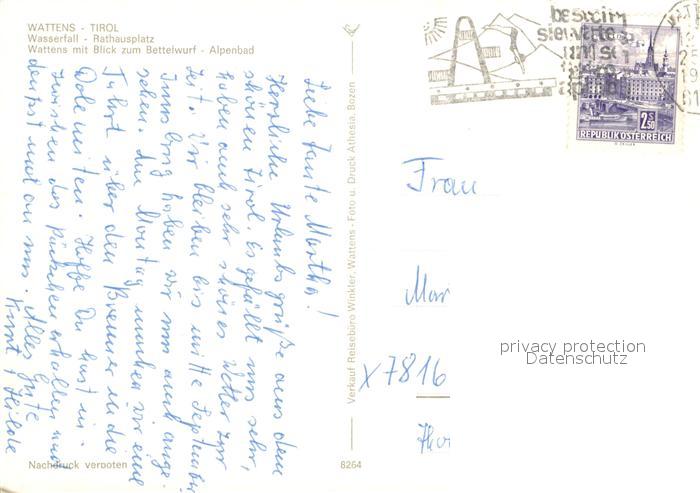 WATTENS - TIROL
Wasserfall - Rathausplatz
Wattens mit Blick zum Bettelwurf - Alpenbad
Liebe Tante Martha!
Herzliche Urlaubsgrüße aus dem
schönen Tirol. Es gefällt uns sehr,
haben auch sehr schönes Wetter zur
Zeit. Wir bleiben bis mitte September
Innsbrug haben wir uns auch ange-
sehen. Am Montag machen wir eine
Fahrt über den Brenner in die
Dolemiten. Hoffe Du hast in-
zwischen das Päckchen erhalten und
denkst mal an uns. Alles Gute
Kurt & Hilde
Nachdruck verboten
8264
Verkauf Reisebüro Winkler, Wattens - Foto u. Druck Athesia, Bozen
2 S 50
REPUBLIK ÖSTERREICH
Frau
Mar
X 7816
privacy protection
Datenschutz